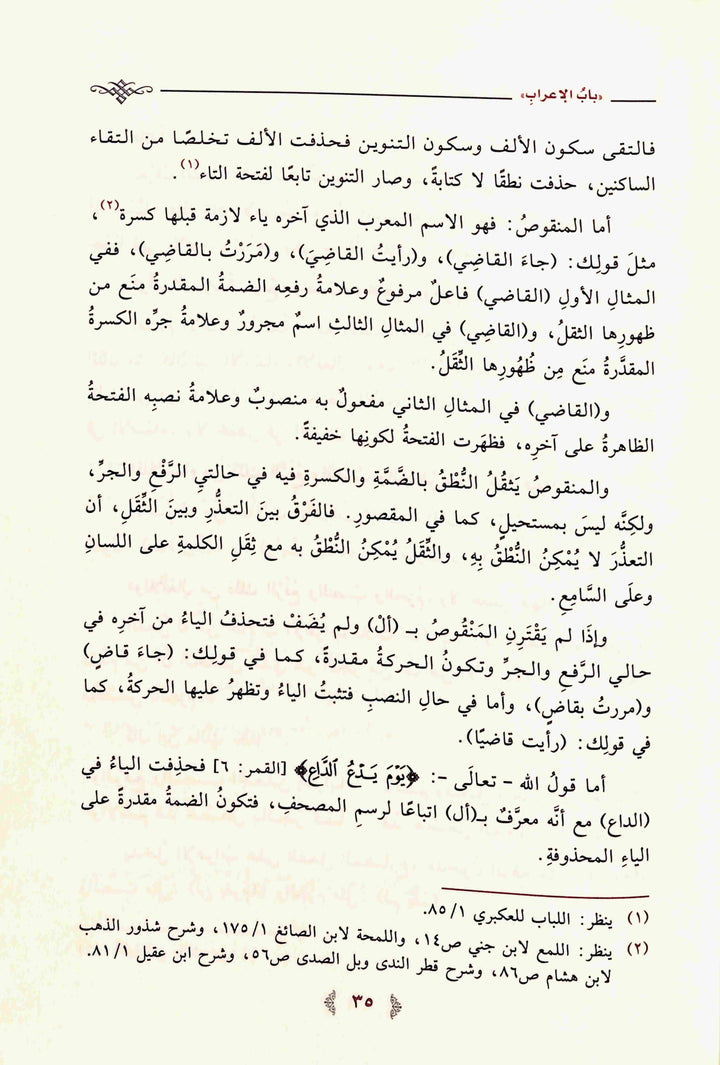 «بابُ الإعرابِ»
فالتقى سكون الألف وسكون التنوين فحذفت الألف تخلصًا من التقاء
الساكنين، حذفت نطقًا لا كتابةً، وصار التنوين تابعًا لفتحة التاء(١).
أما المنقوصُ: فهو الاسم المعرب الذي آخره ياء لازمة قبلها كسرة(٢)،
مثلَ قولِك: (جاءَ القاضِي)، و(رأيتُ القاضِيَ)، و(مَرَرْتُ بالقاضِي)، ففي
المثالِ الأولِ (القاضي) فاعلٌ مرفوعٌ وعلامةُ رفعِه الضمةُ المقدرةُ منَع من
ظهورِها الثقلُ، و(القاضِي) في المثالِ الثالثِ اسمٌ مجرورٌ وعلامةُ جرِّه الكسرةُ
المقدَّرةُ منَع مِن ظُهُورِها الثِّقَلُ.
و(القاضي) في المثالِ الثاني مفعولٌ به منصوبٌ وعلامةُ نصبِه الفتحةُ
الظاهرةُ على آخرِه، فظهَرت الفتحةُ لكونِها خفيفةً.
والمنقوصُ يَثقُلُ النُّطْقُ بالضَّمَّةِ والكسرةِ فيه في حالتيِ الرَّفْعِ والجرِّ،
ولكِنَّه ليسَ بمستحيلٍ، كما في المقصورِ. فالفَرْقُ بينَ التعذُّرِ وبينَ الثِّقَلِ، أن
التعذُّرَ لا يُمْكِنُ النُّطْقُ بِهِ، والثِّقَلُ يُمْكِنُ النُّطْقُ به مع ثِقَلِ الكلمةِ على اللسانِ
وعلَى السَّامِعِ.
وإذَا لم يَقْتَرِنِ المَنْقُوصُ بـ (أَلْ) ولم يُضَفْ فتحذفُ الياءُ من آخرِه في
حالي الرَّفعِ والجرِّ وتكونُ الحركةُ مقدرةً، كما في قولِكَ: (جاءَ قاضٍ)
و(مررتُ بقاضٍ)، وأما في حال النصبِ فتثبتُ الياءُ وتظهرُ عليها الحركةُ، كما
في قولِك: (رأيت قاضيًا).
أما قولُ الله - تعالَى -: ﴿يَوْمَ يَدْعُ الدَّاعِ﴾ [القمر: ٦] فحذِفت الياءُ في
(الداع) مع أنَّه معرَّفٌ بـ(أل) اتباعًا لرسمِ المصحفِ، فتكونُ الضمةُ مقدرةً على
الياءِ المحذوفةِ.
(١) ينظر: اللباب للعكبري ٨٥/١.
(٢) ينظر: اللمع لابن جني ص١٤، واللمحة لابن الصائغ ١٧٥/١، وشرح شذور الذهب
لابن هشام ص٨٦، وشرح قطر الندى وبل الصدى ص٥٦، وشرح ابن عقيل ٨١/١.
٣٥